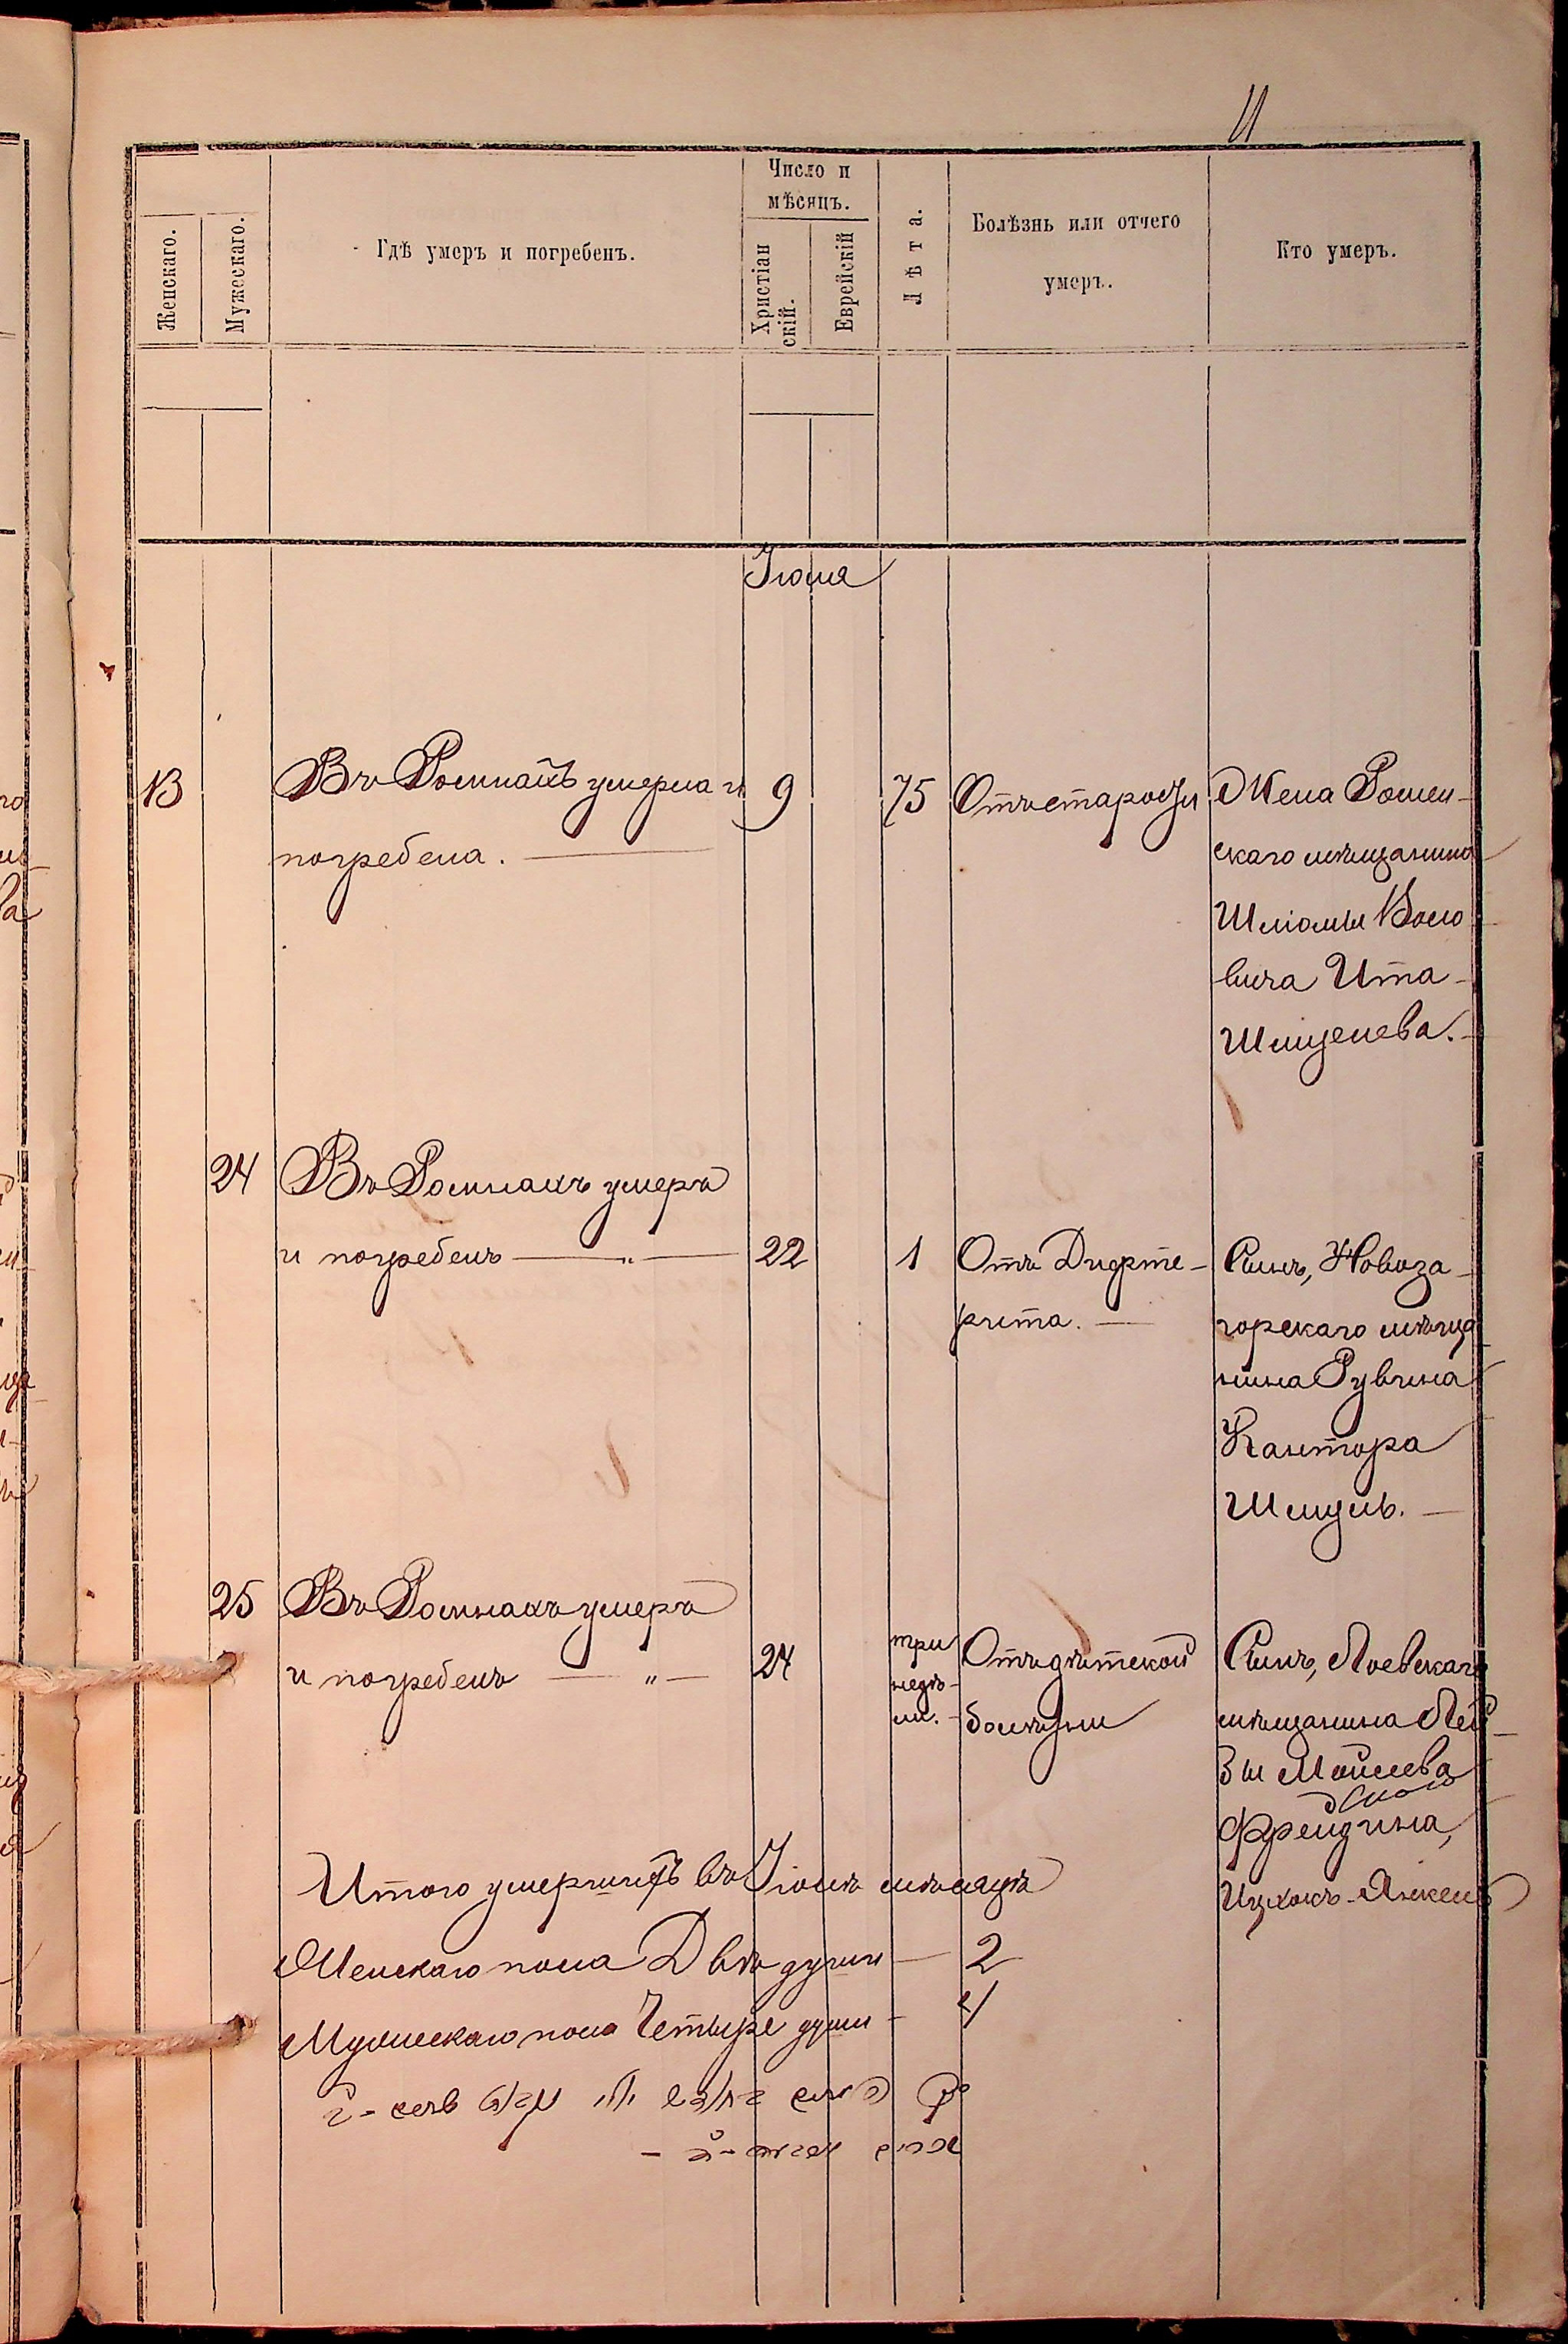 11
Женскаго.
Мужескаго.
Гдѣ умеръ и погребенъ.
Число и
мѣсяцъ.
Христіан
скій.
Еврейскій
Лѣта.
Болѣзнь или отчего
умеръ.
Кто умеръ.
Іюня
13
Въ Ромнахъ умерла и
погребена.
9
75
Отъ старости
Жена Ромен-
скаго мѣщанина
Шліомы Воло
вича Ита-
Шмуелева.
24
Въ Ромнахъ умеръ
и погребенъ — „ —
22
1
Отъ Дифте-
рита.
Сынъ, Новоза-
горскаго мѣща
нина Рувина
Кантора
Шмуль.
25
Въ Ромнахъ умеръ
и погребенъ — „ —
24
три
недѣ-
ли.
Отъ дѣтской
болѣзни
Сынъ, Лоевскаго
мѣщанина Лей-
зы Моисеева
Фрейдина,
Ицхокъ-Янкель
Итого умершихъ въ Іюнѣ мѣсяцѣ
Женскаго пола Двѣ души — 2
Мужескаго пола Четыре души - 4